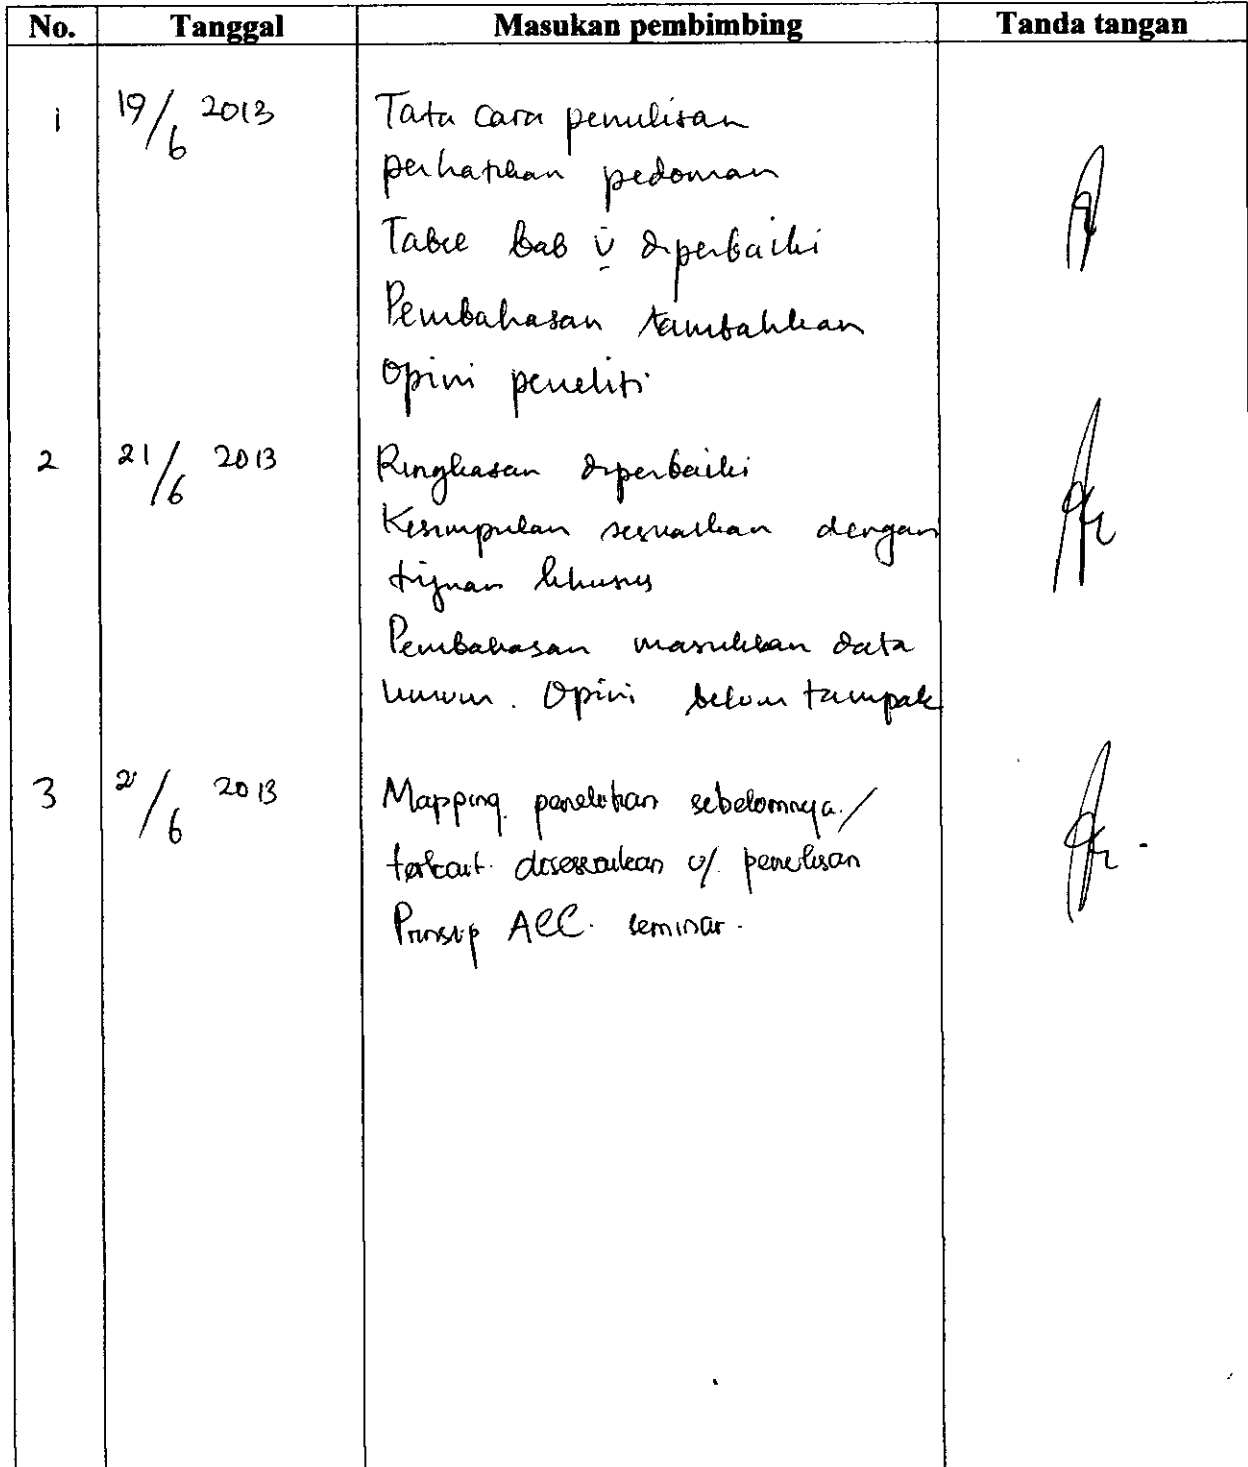 No. Tanggal Masukan pembimbing Tanda tangan
1 19/6 2013 Tata cara penulisan
perhatikan pedoman
Tabel bab v diperbaiki
Pembahasan tambahkan
Opini peneliti
2 21/6 2013 Ringkasan diperbaiki
Kesimpulan sesuaikan dengan
tujuan khusus
Pembahasan masukkan data
umum. Opini belum tampak
3 /6 2013 Mapping penelitian sebelomnya./
terkait disesuaikan u/. penulisan
Prinsip ACC. seminar.